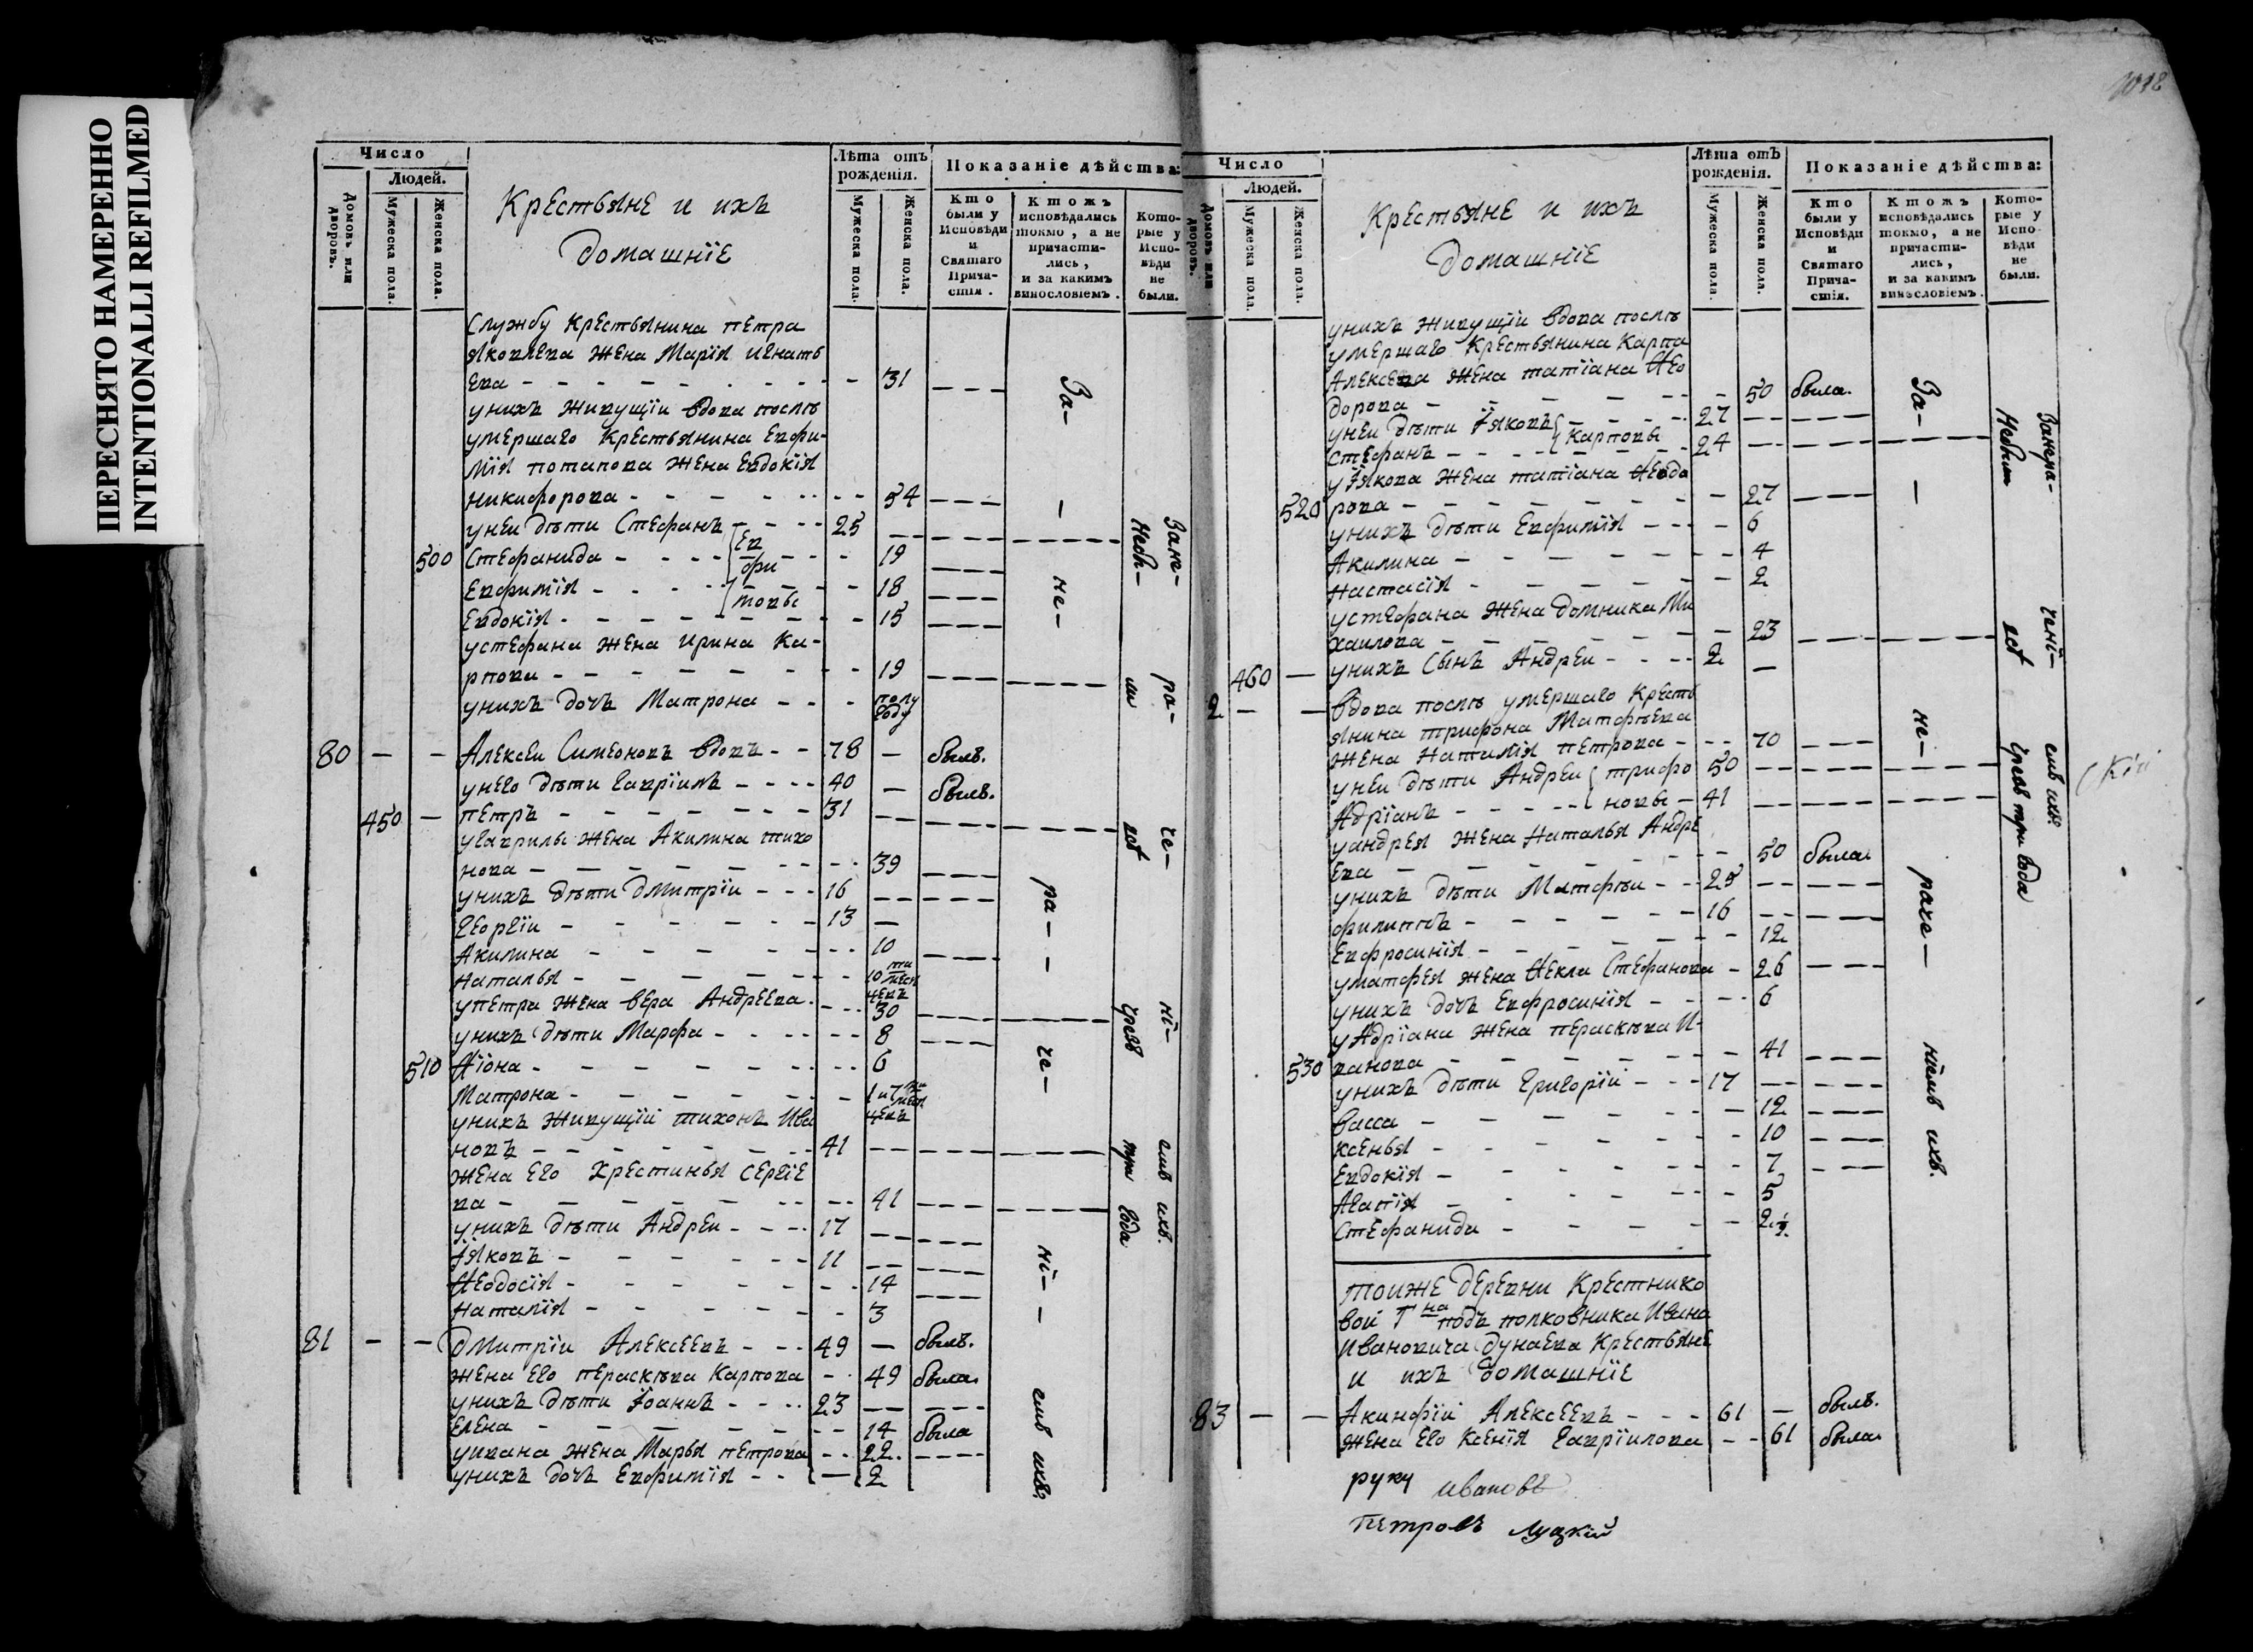 ПЕРЕСНЯТО НАМЕРЕННО
INTENTIONALLI REFILMED
Число
Людей.
Домовъ или дворовъ.
Мужеска пола.
Женска пола.
Крестьяне и ихъ
домашніе
Лѣта отъ рожденія.
Мужеска пола.
Женска пола.
Показаніе дѣйства:
Кто были у Исповѣди и Святаго Прича-стія.
Ктожъ исповѣдались токмо, а не причасти-лись, и за какимъ винословіемъ.
Кото-рые у Испо-вѣди не были.
Службу крестьянина петра
яковлева жена Марія игнатъ
ева - 31
унихъ живущіи вдова послѣ
умершаго крестьянина Евфи-
мія потапова жена Евдокія
никифорова - 54
унеи дѣти Стефанъ - 25
500 Стефанида - 19
Евфимія - 18
Евфимовы
Евдокія - 15
устефана жена ирина ка-
рпова - 19
унихъ дочь Матрона - полу году
80 — — Алексеи Симеоновъ вдовъ - 78 — былъ.
унего дѣти гавріилъ - 40 — былъ.
450 — петръ - 31
угаврилы жена Акилина тихо
нова - 39
унихъ дѣти дмитріи - 16
георгіи - 13 —
Акилина - 10
Наталья - 10 ти месяцевъ
упетра жена вера Андреева - 30
унихъ дѣти Марфа - 8
510 Ѳіона - 6
Матрона - 1 и 7 ми месяцевъ
унихъ живущіи тихонъ Ива
новъ - 41
жена его Христинья сергіе
ва - 41
унихъ дѣти Андреи - 17
Іяковъ - 11
Ѳеодосія - 14
Наталія - 3
81 — — дмитріи Алексеевъ - 49 — былъ.
жена его пераскѣва Карпова - 49 была
унихъ дѣти Іоаннъ - 23
Елена - 14 была
уивана жена Марья петрова - 22
унихъ дочь Евфимія - 2
За-не-ра-че-ні-емъ ихъ.
Зане-ра-че-ні-емъ ихъ.
чрезъ три года
1018
Число
Людей.
Домовъ или дворовъ.
Мужеска пола.
Женска пола.
Крестьяне и ихъ
домашніе
Лѣта отъ рожденія.
Мужеска пола.
Женска пола.
Показаніе дѣйства:
Кто были у Исповѣди и Святаго Прича-стія.
Ктожъ исповѣдались токмо, а не причасти-лись, и за какимъ винословіемъ.
Кото-рые у Испо-вѣди не были.
унихъ живущіи вдова послѣ
умершаго крестьянина Карпа
Алексева жена татіана Ѳео
дорова - 50 была.
унеи дѣти Іяковъ - 27
Карповы
Стефанъ - 24
уІякова жена татіана Ѳеодо
520 рова - 27
унихъ дѣти Евфимія - 6
Акилина - 4
настасія - 2
устефана жена домника Ми
хаилова - 23
460 — унихъ сынъ Андреи - 2 —
2 — — вдова послѣ умершаго кресть
янина трифона Матфѣева
жена Наталія петрова - 70
унеи дѣти Андреи трифо 50
Адріанъ - новы - 41
уандрея жена Наталья Андре
ева - 50 была
унихъ дѣти Матфѣи - 25
филиппъ - 16
Евфросинія - 12
уматфея жена Ѳекла Стефанова - 26
унихъ дочь Евфросинія - 6
уАдріана жена пераскѣва И-
530 ванова - 41
унихъ дѣти Григоріи - 17
васса - 12
ксенья - 10
Евдокія - 7
Агапія - 5
Стефанида - 2 ½
За-не-раче-ніемъ ихъ.
Занера-чені-емъ ихъ.
чрезъ три года
тоиже деревни Крестнико
вои Гна подъ полковника Ивана
Ивановича дунаева крестьяне
и ихъ домашніе
83 — — Акинфіи Алексеевъ - 61 — былъ.
жена его ксенія гавріилова - 61 была
руку ивановъ
Петровъ Луцкій